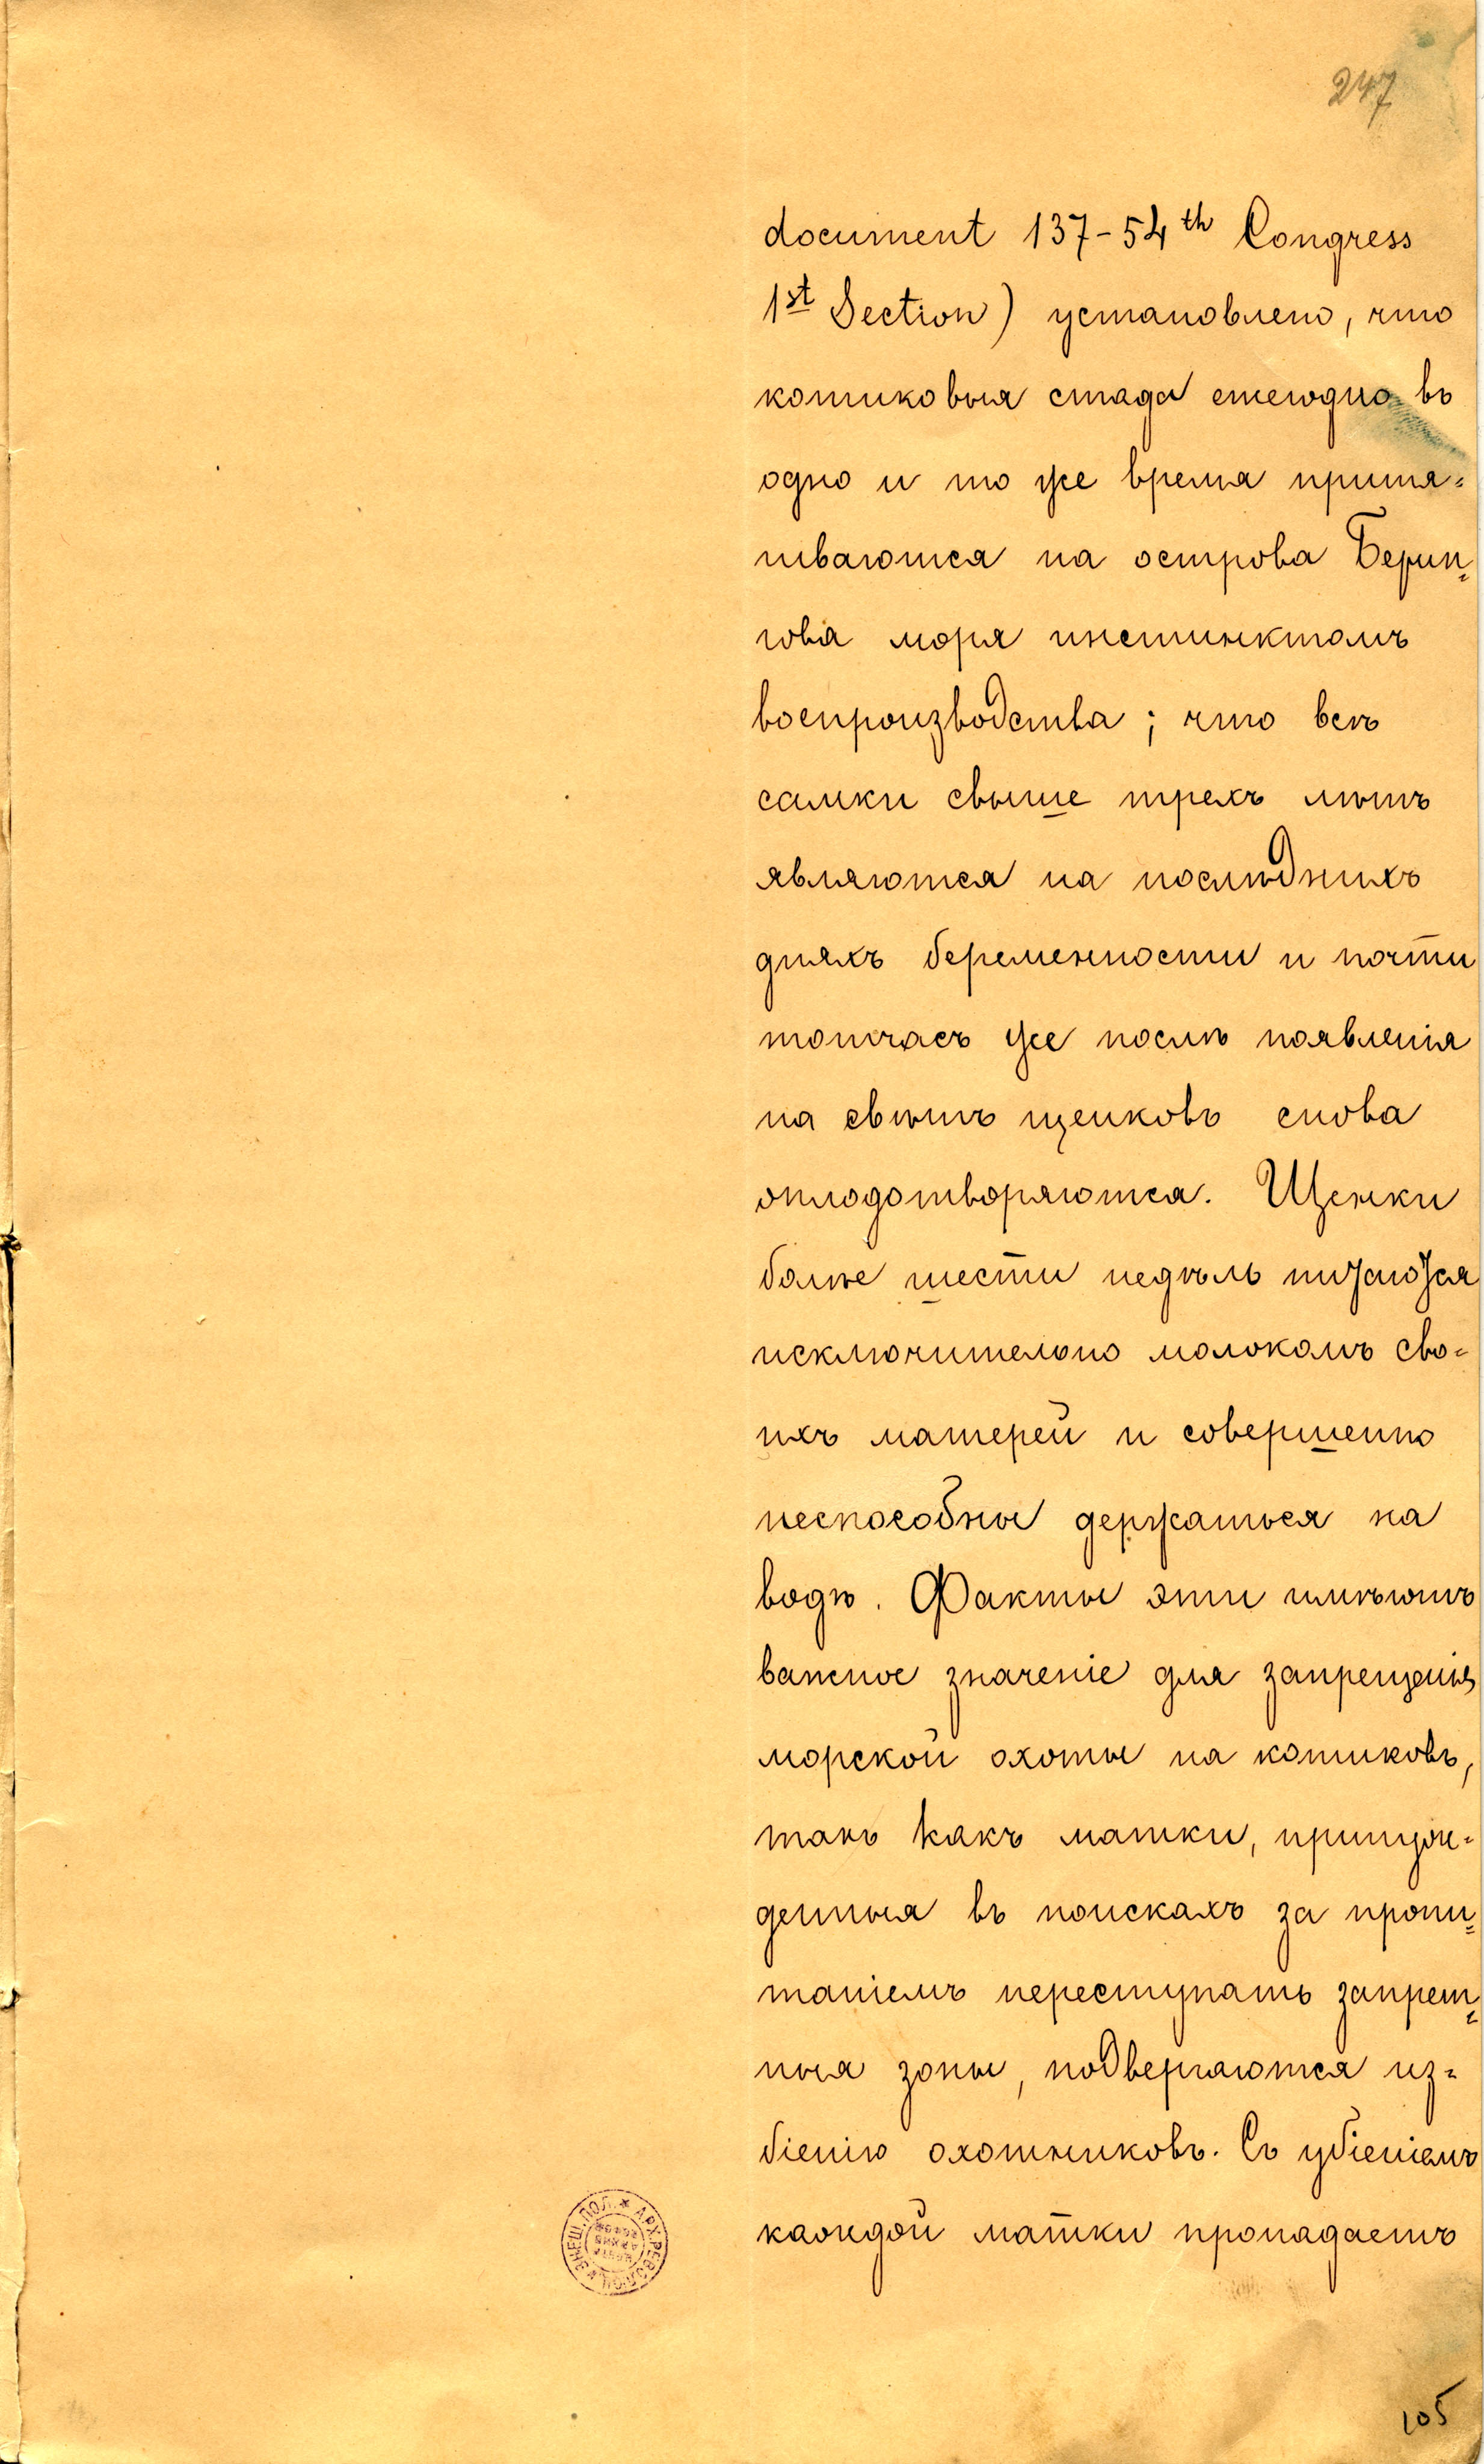 247
document 137-54th Congress
1st Section) установлено, что
котиковыя стада ежегодно въ
одно и то же время притя=
гиваются на острова Берин=
гова моря инстинктомъ
воспроизводства; что всѣ
самки свыше трехъ лѣтъ
являются на послѣднихъ
дняхъ беременности и почти
тотчасъ же послѣ появленія
на свѣтъ щенковъ снова
оплодотворяются. Щенки
болѣе шести недѣль питаются
исключительно молокомъ сво=
ихъ матерей и совершенно
неспособны держаться на
водѣ. Факты эти имѣютъ
важное значеніе для запрещенія
морской охоты на котиковъ,
такъ какъ матки, принуж=
денныя въ поискахъ за пропи=
таніемъ переступать запрет=
ныя зоны, подвергаются из=
біенію охотниковъ. Съ убіеніемъ
каждой матки пропадаетъ
АРХ. РЕВОЛ. И ВНЕШ. ПОЛ.
105